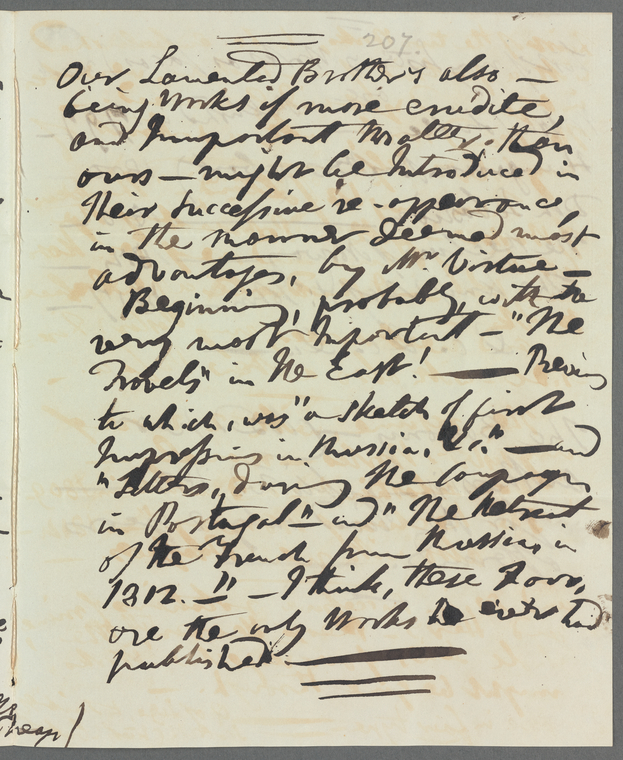 207.
Our Lamented Brother's also —
being Works of more erudite,
and Important Matter, than
ours — might be Introduced in
their Successive re-appearance,
in the manner deemed most
advantages, by Mr. Virtue —
Beginning, probably, with the
very most Important — "The
Travels" in the East! — Previous
to which, was "a sketch of first
Impressions in Russia, &c." — and
"Letters, during the Campaign
in Portugal" — and "The Retreat
of the French from Russia, in
1812." — I think, these Four,
are the only Works he ever had
published. —